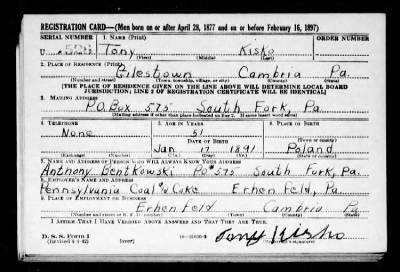 REGISTRATION CARD—(Men born on or after April 28, 1877 and on or before February 16, 1897)
SERIAL NUMBER 1. NAME (Print)
U Tony Kisko
(First) (Middle) (Last)
2. PLACE OF RESIDENCE (Print)
Gilestown Cambria Pa.
(Number and street) (Town, township, village, or city) (County) (State)
[THE PLACE OF RESIDENCE GIVEN ON THE LINE ABOVE WILL DETERMINE LOCAL BOARD
JURISDICTION; LINE 2 OF REGISTRATION CERTIFICATE WILL BE IDENTICAL]
3. MAILING ADDRESS
P.O. Box 575 South Fork, Pa.
[Mailing address if other than place indicated on line 2. If same insert word same]
4. TELEPHONE 5. AGE IN YEARS 6. PLACE OF BIRTH
None 51
DATE OF BIRTH (Town or county)
Jan 17 1891 Poland
(Exchange) (Number) (Mo.) (Day) (Yr.) (State or country)
7. NAME AND ADDRESS OF PERSON WHO WILL ALWAYS KNOW YOUR ADDRESS
Anthony Bentkowski PO#575 South Fork, Pa.
8. EMPLOYER'S NAME AND ADDRESS
Pennsylvania Coal & Coke Erhenfeld, Pa.
9. PLACE OF EMPLOYMENT OR BUSINESS
Erhenfeld Cambria Pa
(Number and street or R. F. D. number) (Town) (County) (State)
I AFFIRM THAT I HAVE VERIFIED ABOVE ANSWERS AND THAT THEY ARE TRUE.
D. S. S. Form 1
(Revised 4-1-42) (over) Tony Kisko
(Registrant's signature)